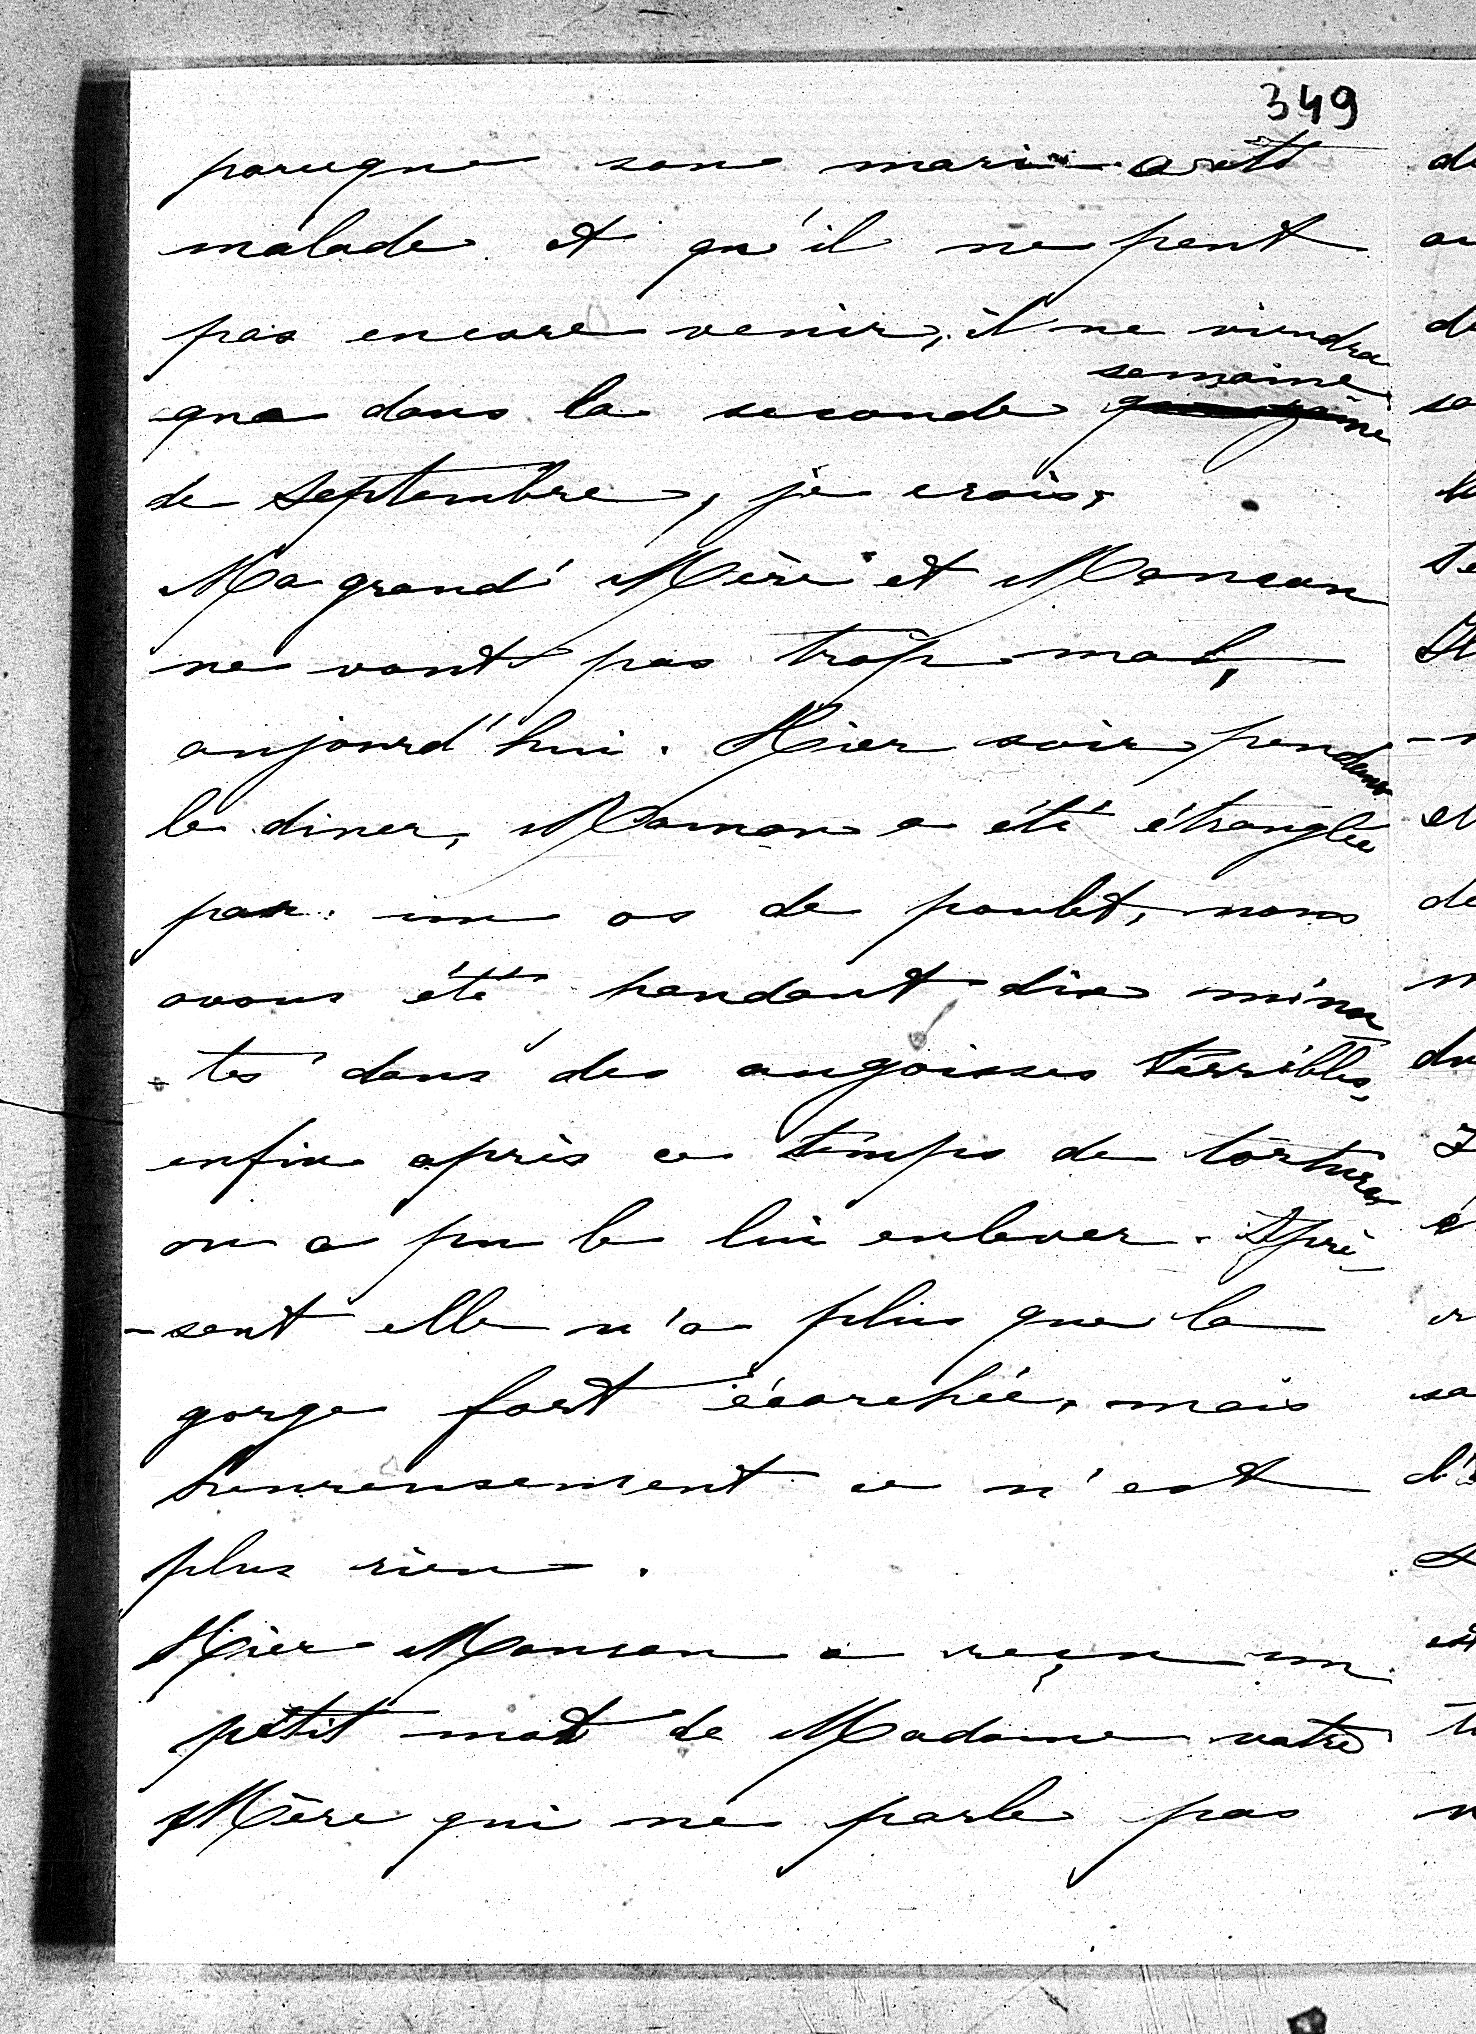 349
parceque son mari a été
malade et qu'il ne peut
pas encore venir, il ne viendra
que dans la seconde semaine
de Septembre, je crois,
Ma grand' Mère et Maman
ne vont pas trop mal,
aujourd'hui. Hier soir pendant
le diner, Maman a été étranglée
par un os de poulet, nous
avons été pendant dix minu
tes dans des angoisses terribles,
enfin après ce temps de tortures
on a pu le lui enlever. Apré-
-sent elle n'a plus que la
gorge fort écorchée, mais
heureusement ce n'est
plus rien.
Hier Maman a reçu un
petit mot de Madame votre
Mère qui ne parle pas